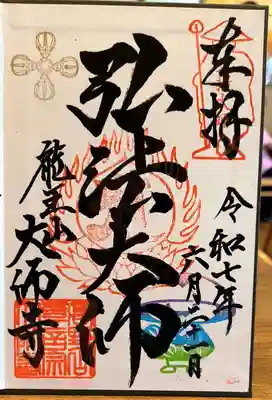 奉拝
令和七年
六月二十一日
弘法大師
龍王山
大師寺